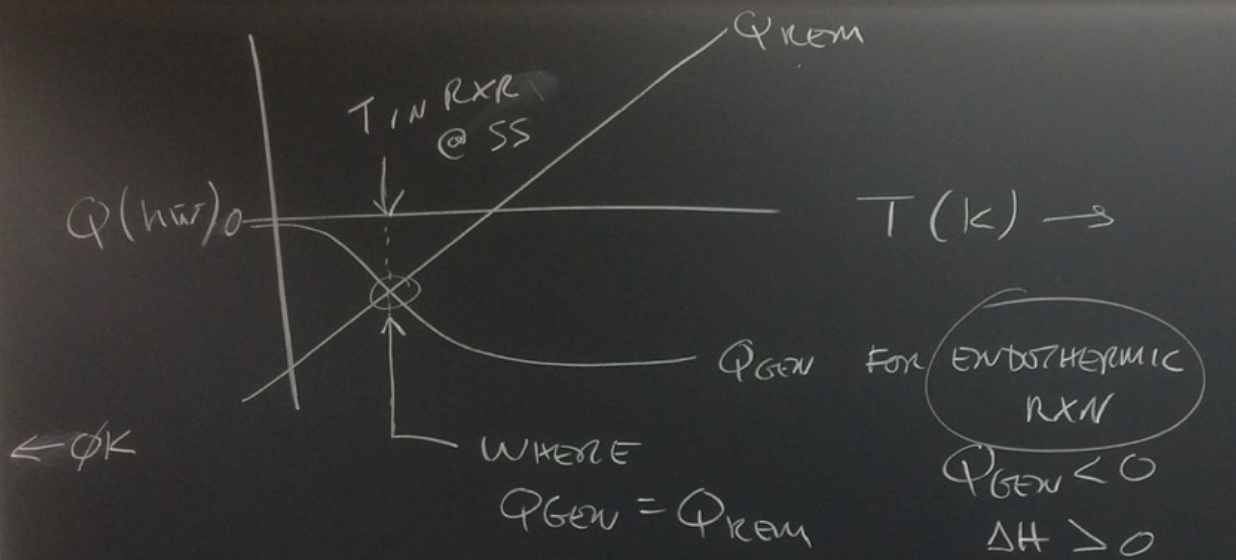 QREM
T IN RXR
@ SS
Q(kW) 0
T(K) →
QGEN FOR ENDOTHERMIC
RXN
← ØK
WHERE
QGEN = QREM
QGEN < 0
ΔH > 0